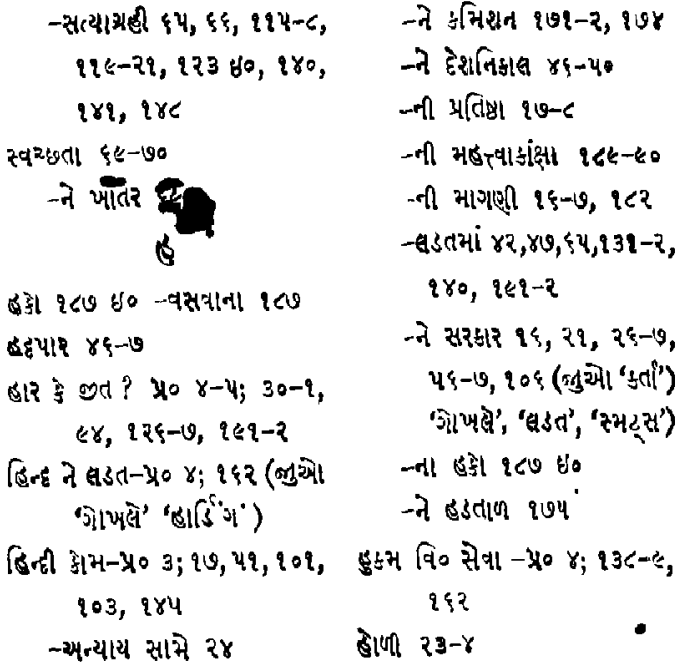 –સત્યાગ્રહી ૬૫, ૬૬, ૧૧૫–૮,
૧૧૯–૨૧, ૧૨૩ ઇ૦, ૧૪૦,
૧૪૧, ૧૪૮
સ્વચ્છતા ૬૯–૭૦
–ને ખાતર
હ
હકો ૧૮૭ ઇ૦ –વસવાના ૧૮૭
હદ્દપાર ૪૬–૭
હાર કે જીત ? પ્ર૦ ૪–૫; ૩૦–૧,
૯૪, ૧૨૬–૭, ૧૯૧–૨
હિન્દ ને લડત–પ્ર૦ ૪; ૧૬૨ (જુઓ
‘ગોખલે’ ‘હાર્ડિંગ’)
હિન્દી કોમ–પ્ર૦ ૩; ૧૭, ૫૧, ૧૦૧,
૧૦૩, ૧૪૫
–અન્યાય સામે ૨૪
–ને કમિશન ૧૭૧–૨, ૧૭૪
–ને દેશનિકાલ ૪૬–૫૦
–ની પ્રતિષ્ઠા ૧૭–૮
–ની મહત્ત્વાકાંક્ષા ૧૮૯–૯૦
–ની માગણી ૧૬–૭, ૧૮૨
–લડતમાં ૪૨,૪૭,૬૫,૧૩૧–૨,
૧૪૦, ૧૯૧–૨
–ને સરકાર ૧૬, ૨૧, ૨૬–૭,
૫૬–૭, ૧૦૬ (જુઓ ‘કર્તા’)
‘ગોખલે’, ‘લડત’, ‘સ્મટ્સ’)
–ના હકો ૧૮૭ ઇ૦
–ને હડતાળ ૧૭૫
હુકમ વિ૦ સેવા –પ્ર૦ ૪; ૧૩૮–૯,
૧૬૨
હોળી ૨૩–૪